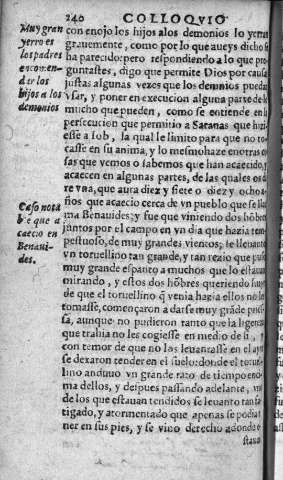 240 COLLOQVIO
Muy gran
yerro es
los padres
encomen-
dar los
hijos a los
demonios
con enojo los hijos alos demonios lo yerra
grauemente, como por lo que aueys dicho se
ha parecido: pero respondiendo a lo que pre
guntastes, digo que permite Dios por causas
justas algunas vezes que los demnios puedan
vsar, y poner en execucion alguna parte de lo
mucho que pueden, como se entiende en la
persecucion que permitio a Satanas que hizi
esse a Iob, la qual le limito para que no to
casse en su anima, y lo mesmo haze en otras co
sas que vemos o sabemos que han acaecido, y
acaecen en algunas partes, de las quales os di
re vna, que aura diez y siete o diez y ocho a
ños que acaecio cerca de vn pueblo que se lla
Caso nota
ble que a
caecio en
Benaui-
des.
ma Benauides; y fue que viniendo dos hōbres
juntos por el campo en vn dia que hazia tem
pestuoso, de muy grandes vientos, se leuanto
vn toruellino tan grande, y tan rezio que puso
muy grande espanto a muchos que lo estauan
mirando, y estos dos hōbres queriendo huyr
de que el toruellino q̄ venia hazia ellos no los
tomasse, começaron a darse muy grāde priessa
sa, aunque no pudieron tanto que la ligereza
que trahia no les cogiesse en medio de si, y
con temor de que no los leuantasse en el ayre
se dexaron tender en el suelo: donde el toruel
lino anduuo vn grande rato de tiempo enci
ma dellos, y despues passando adelante, vno
de los que estauan tendidos se leuanto tan fa
tigado, y atormentado que apenas se podia te
ner en sus pies, y se vino derecho adonde e
stauā